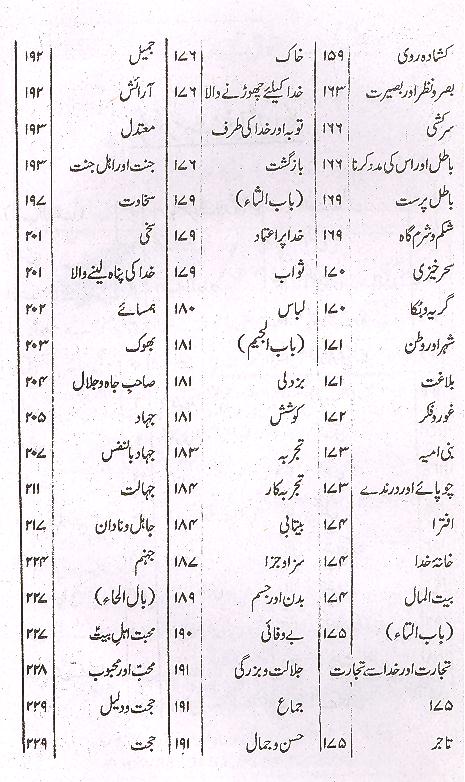 کشادہ روی ۱۵۹
بصر و نظر اور بصیرت ۱۶۳
سرکشی ۱۶۶
باطل اور اس کی مدد کرنا ۱۶۶
باطل پرست ۱۶۹
شکم و شرم گاہ ۱۶۹
سحر خیزی ۱۷۰
گریہ و بکا ۱۷۰
شہر اور وطن ۱۷۱
بلاغت ۱۷۱
غور و فکر ۱۷۲
بنی امیہ ۱۷۳
چوپائے اور درندے ۱۷۳
افترا ۱۷۴
خانۂ خدا ۱۷۴
بیت المال ۱۷۴
(باب التاء) ۱۷۵
تجارت اور خدا سے تجارت
۱۷۵
تاجر ۱۷۵
خاک ۱۷۶
خدا کیلئے چھوڑنے والا ۱۷۶
توبہ اور خدا کی طرف
بازگشت ۱۷۶
(باب الثاء) ۱۷۹
خدا پر اعتماد ۱۷۹
ثواب ۱۷۹
لباس ۱۸۰
(باب الجیم) ۱۸۱
بزدلی ۱۸۱
کوشش ۱۸۱
تجربہ ۱۸۳
تجربہ کار ۱۸۴
بیتابی ۱۸۴
سزا و جزا ۱۸۷
بدن اور جسم ۱۸۹
بے وفائی ۱۹۰
جلالت و بزرگی ۱۹۱
جماع ۱۹۱
حسن و جمال ۱۹۱
جمیل ۱۹۲
آرائش ۱۹۲
معتدل ۱۹۳
جنت اور اہل جنت ۱۹۳
سخاوت ۱۹۷
سخی ۲۰۱
خدا کی پناہ لینے والا ۲۰۱
ہمسائے ۲۰۲
بھوک ۲۰۳
صاحب جاہ و جلال ۲۰۴
جہاد ۲۰۵
جہاد بالنفس ۲۰۷
جہالت ۲۱۱
جاہل و نادان ۲۱۷
جہنم ۲۲۴
(بال الحاء) ۲۲۷
محبت اہل بیتؑ ۲۲۷
محبّ اور محبوب ۲۲۸
حجت و دلیل ۲۲۹
حجت ۲۲۹